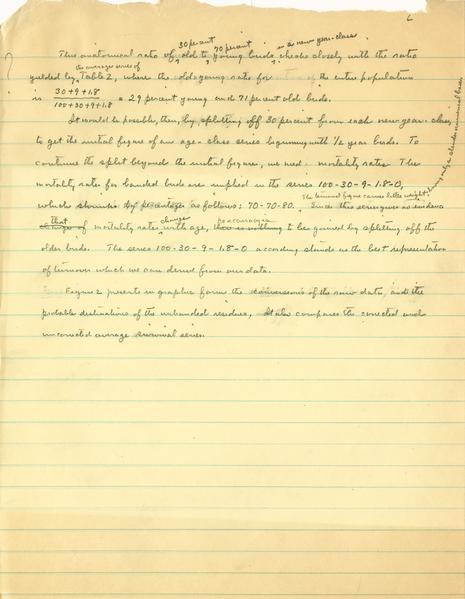 6
This anatomical ratio of 30 percent old to 70 percent young birds in a new year-class checks closely with the ratio
yielded by the average series of Table 2, where the old:young ratio for the entire population
is 30+9+1.8 / 100+30+9+1.8 = 29 percent young and 71 percent old birds.
It would be possible, then, by splitting off 30 percent from each new year-class,
to get the initial figure of an age-class series beginning with 1/2 year birds. To
continue the split beyond the initial figures, we need mortality rates. The
mortality rates for banded birds are implied in the series 100-30-9-1.8-0,
which shrinks by percentages as follows: 70-70-80. The terminal figure carries little weight, being only a slender numerical basis. Since this series gives no evidence
that of mortality rates change with age, to be gained by splitting off the
older birds. The series 100-30-9-1.8-0 according stands as the best representation
of turnover which we can derive from our data.
Figure 2 presents in graphic form the conversions of the raw data, and the
probable destinations of the unbanded residues. It also compares the corrected and
uncorrected average survival series.